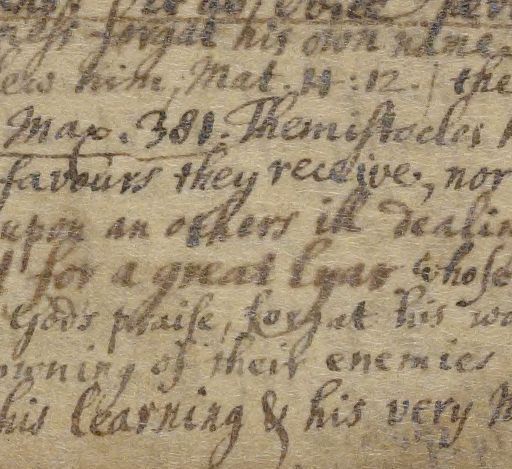 forgat his own name
him, Mat. 14:12. the
Max. 381. Themistocles
favours they receive, nor
upon an others ill dealin
for a great lyar whose
Gods praise, forgat his wo
owning of their enemies
his learning & his very m